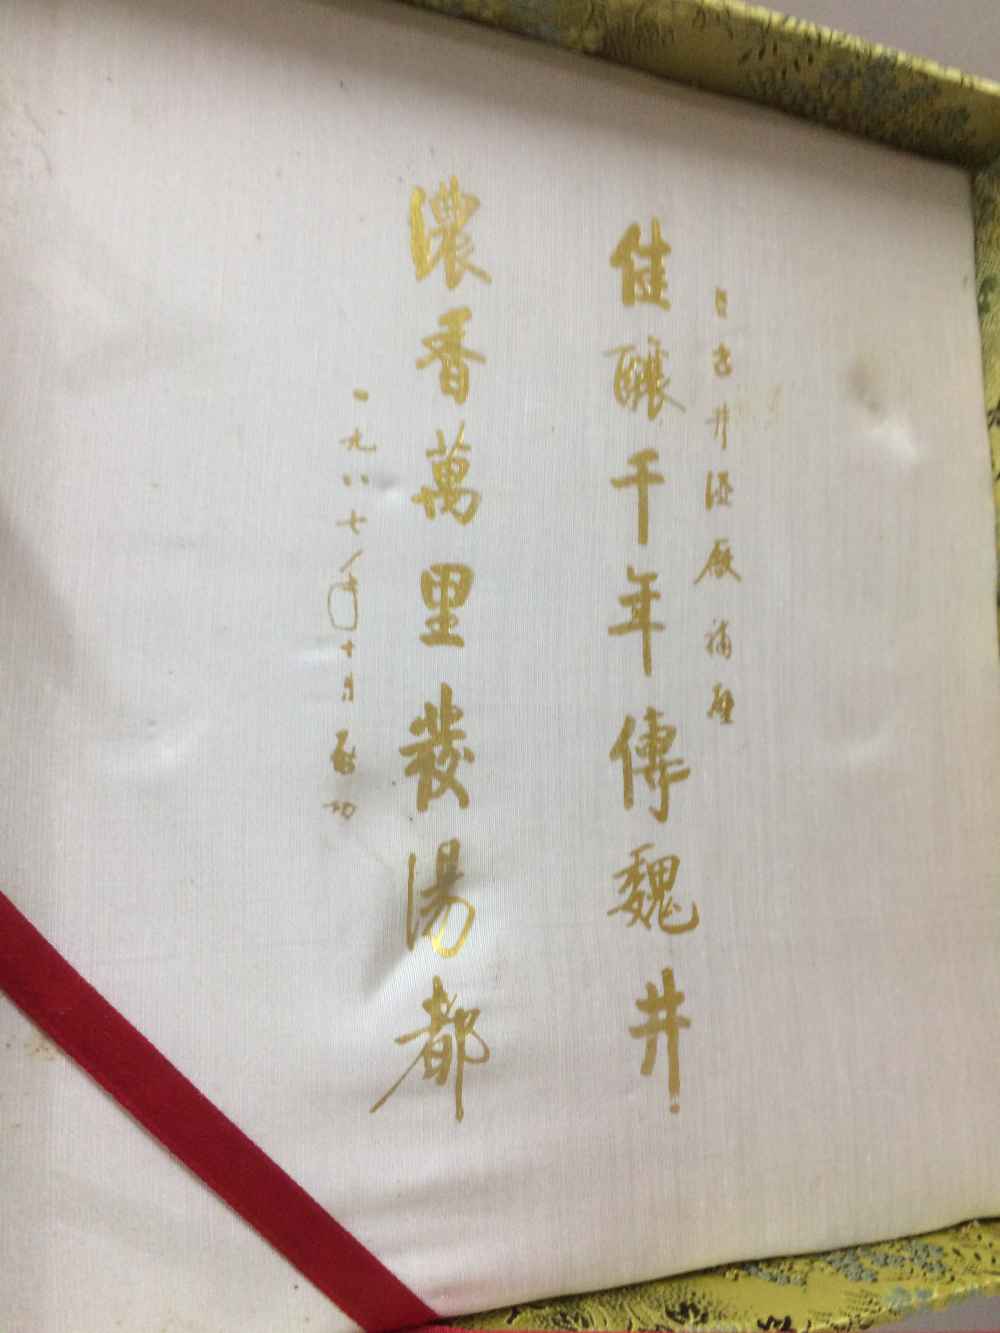 古井酒厰補壁
佳釀千年傳魏井
濃香萬里發湯都
一九八七年十月啟功